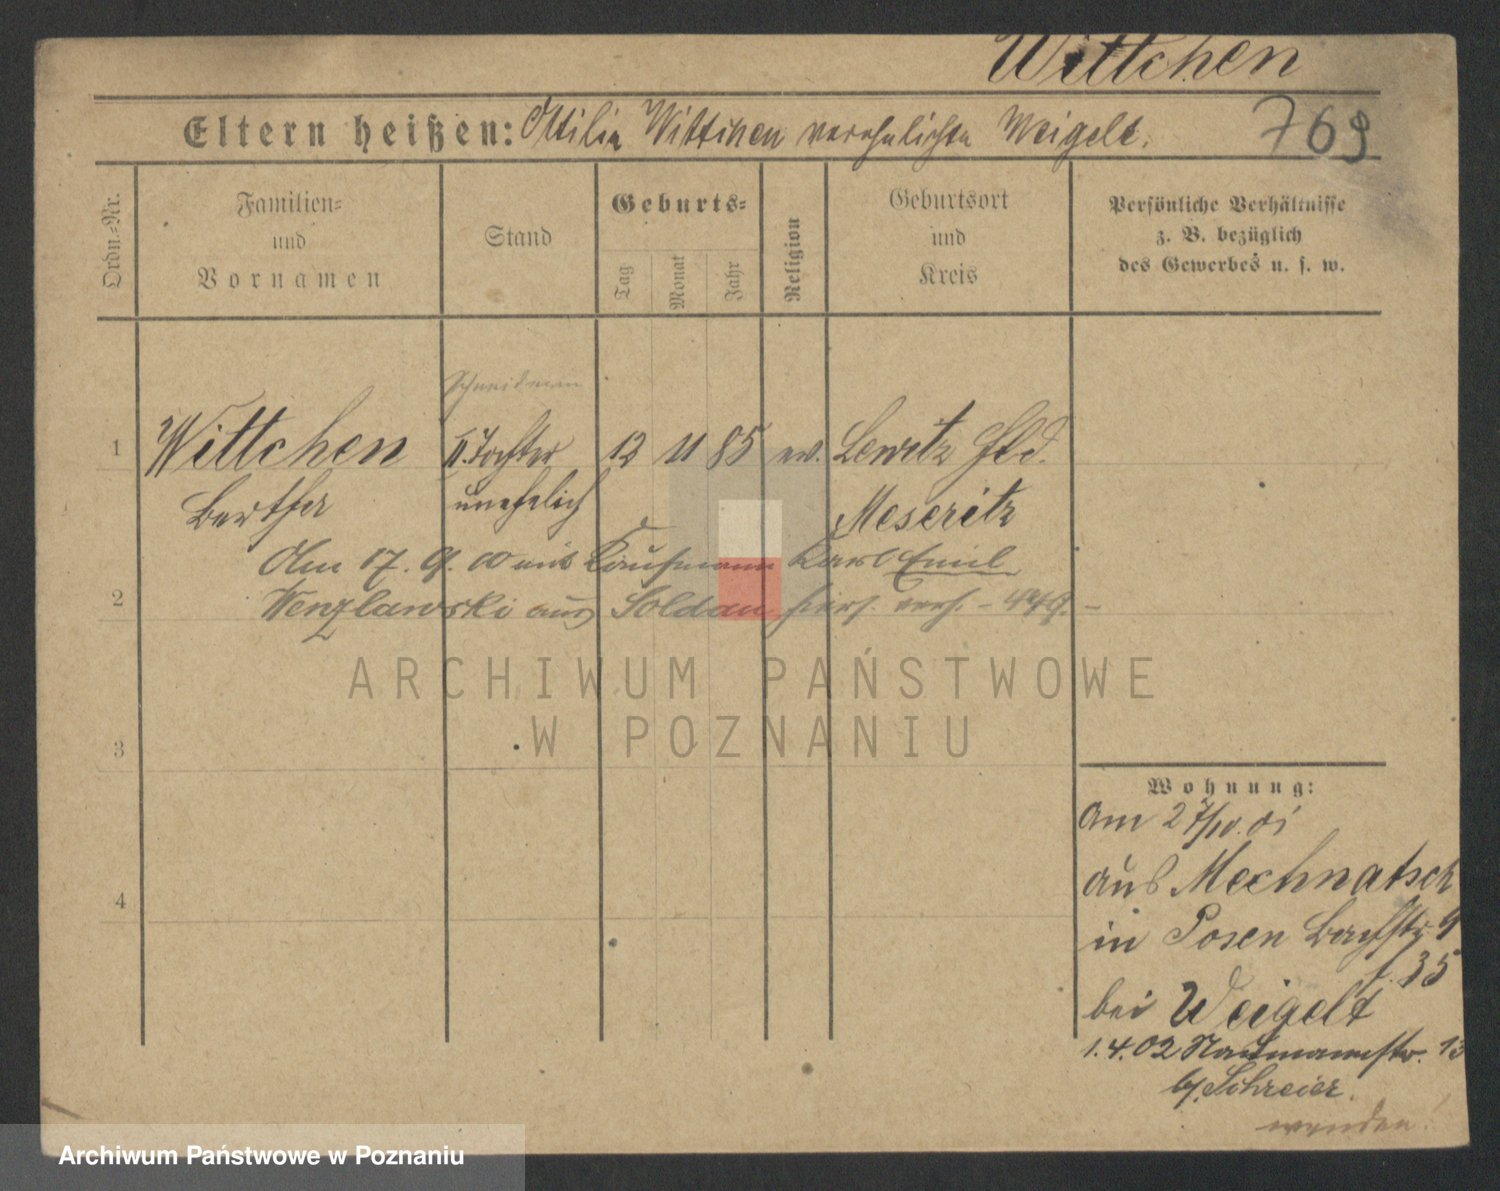 Wittchen
Eltern heißen: Ottilie Wittchen verehelichte Weigelt.
769
Ordn.-Nr.
Familien-
und
Vornamen
Stand
Geburts-
Tag
Monat
Jahr
Religion
Geburtsort
und
Kreis
Persönliche Verhältnisse
z. B. bezüglich
des Gewerbes u. s. w.
1 Wittchen II. Tochter 12 11 85 ev. Lewitz Hld.
Bertha unehelich Meseritz
Am 17. 9. 00 mit Kaufmann Karl Emil
2 Wenzlawski aus Soldau hiers. verh.
3
4
Wohnung:
Am 27/10. 01
aus Mechnatsch
in Posen Bachstr 9
f. 35
bei Weigelt
1.4.02 Naumannstr. 13
b/. Schreier.
wenden!
ARCHIWUM PAŃSTWOWE
W POZNANIU
Archiwum Państwowe w Poznaniu